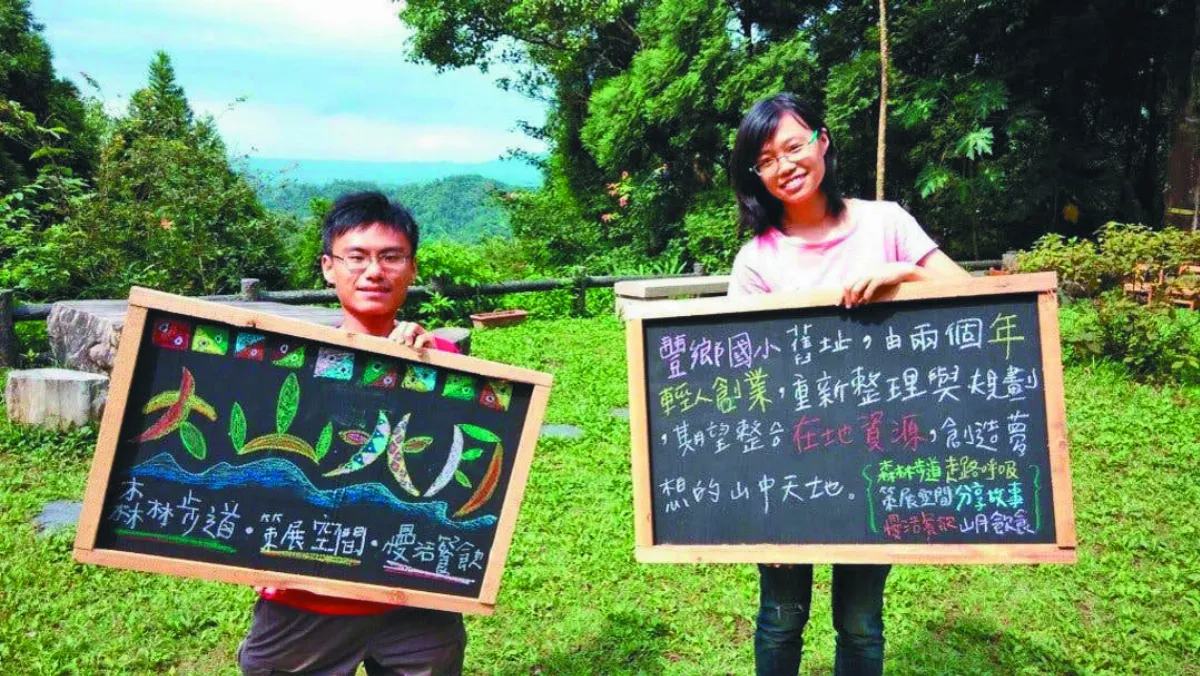 大山北月
森林步道・策展空間・慢活餐飲
豐鄉國小舊址，由兩個年
輕人創業，重新整理與規劃
，期望整合在地資源，創造夢
想的山中天地。
森林步道 走路呼吸
策展空間 分享故事
慢活餐飲 山月飲食